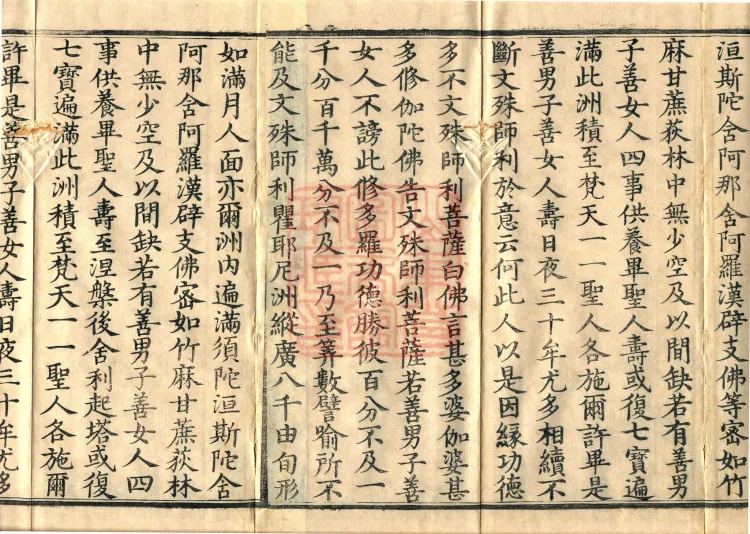 洹斯陀舍阿那舍阿羅漢辟支佛等密如竹
麻甘蔗荻林中無少空及以間缺若有善男
子善女人四事供養畢聖人壽或復七寶遍
滿此洲積至梵天一一聖人各施爾許畢是
善男子善女人壽日夜三十牟尤多相續不
斷文殊師利於意云何此人以是因緣功德
多不文殊師利菩薩白佛言甚多婆伽婆甚
多修伽陀佛告文殊師利菩薩若善男子善
女人不謗此修多羅功德勝彼百分不及一
千分百千萬分不及一乃至筭數譬喻所不
能及文殊師利瞿耶尼洲縱廣八千由旬形
如滿月人面亦爾洲內遍滿須陀洹斯陀舍
阿那舍阿羅漢辟支佛密如竹麻甘蔗荻林
中無少空及以間缺若有善男子善女人四
事供養畢聖人壽至涅槃後舍利起塔或復
七寶遍滿此洲積至梵天一一聖人各施爾
許畢是善男子善女人壽日夜三十牟尤多